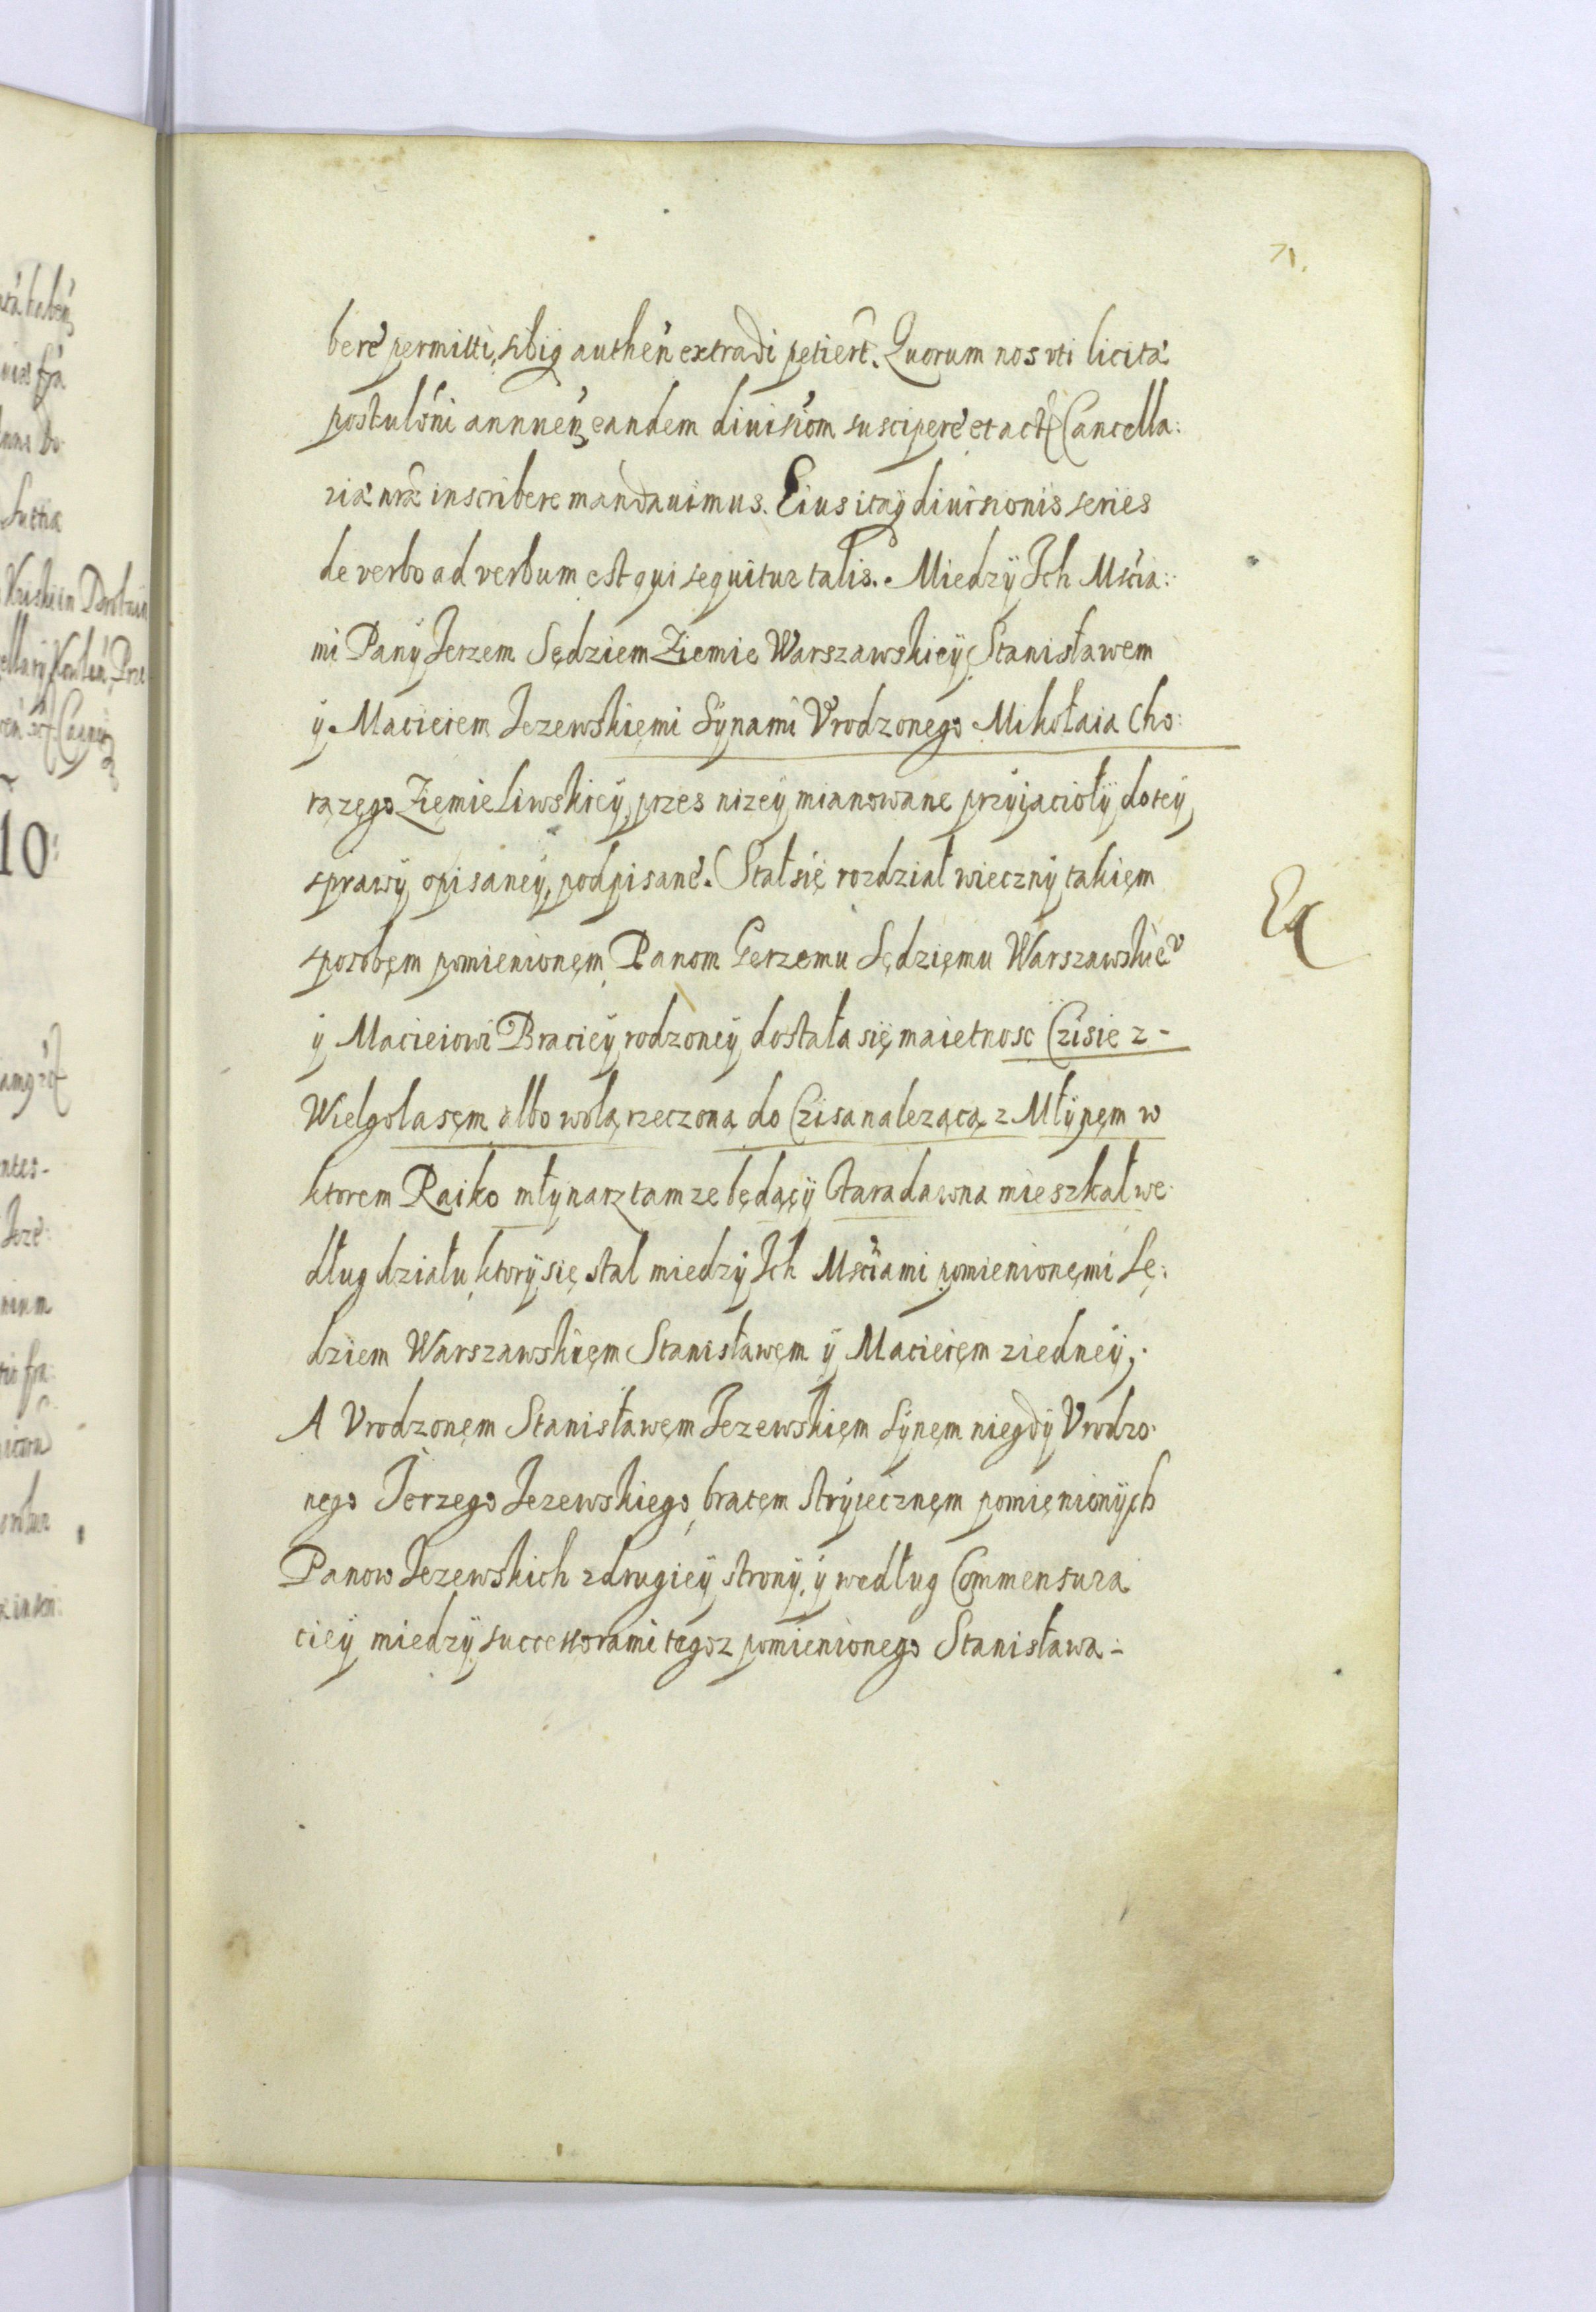 71.
bere permitti, sibiq authen extradi petiert. Quorum nos vti licita
postuloni annuen eandem diuisiom suscipere et act Cancella:
riæ nræ inscribere mandauimus. Eius itaq diuisionis series
de verbo ad verbum est qui sequitur talis. Miedzÿ Ich Mścia:
mi Panÿ Jerzem Sędziem Ziemie Warszawskieÿ, Stanisławem
ÿ Macieiem Jezewskięmi Sÿnami Vrodzonego Mikołaia Cho:
rązęgo Ziemie Liwskieÿ, przes nizeÿ mianowane przÿiaciołÿ do teÿ
sprawÿ opisaneÿ, podpisane. Stał się rozdział wiecznÿ takięm
sposobęm pomienionęm Panom Gerzemu Sędzięmu Warszawskiev
ÿ Macieiowi Bracieÿ rodzoneÿ dostała się maietnosc Czisie z-
Wielgolasęm albo wolą rzeczoną do Czisa nalezącą z Młÿnęm w
ktorem Raiko młÿnarz tamze będąçÿ stara dawna mieszkał we
dług działu ktorÿ się stal miedzÿ Ich Mściami pomienionęmi Sę:
dziem Warszawskięm Stanisławęm ÿ Macieięm z iedneÿ;
A Vrodzonęm Stanisławęm Jezewskięm Sÿnęm niegdÿ Vrodzo
nego Jerzego Jezewskiego, bratęm strÿiecznęm pomięnionÿch
Panow Jezewskich z drugieÿ stronÿ, ÿ według Commensura
cieÿ miedzÿ successorami tegoz pomienionego Stanisława-